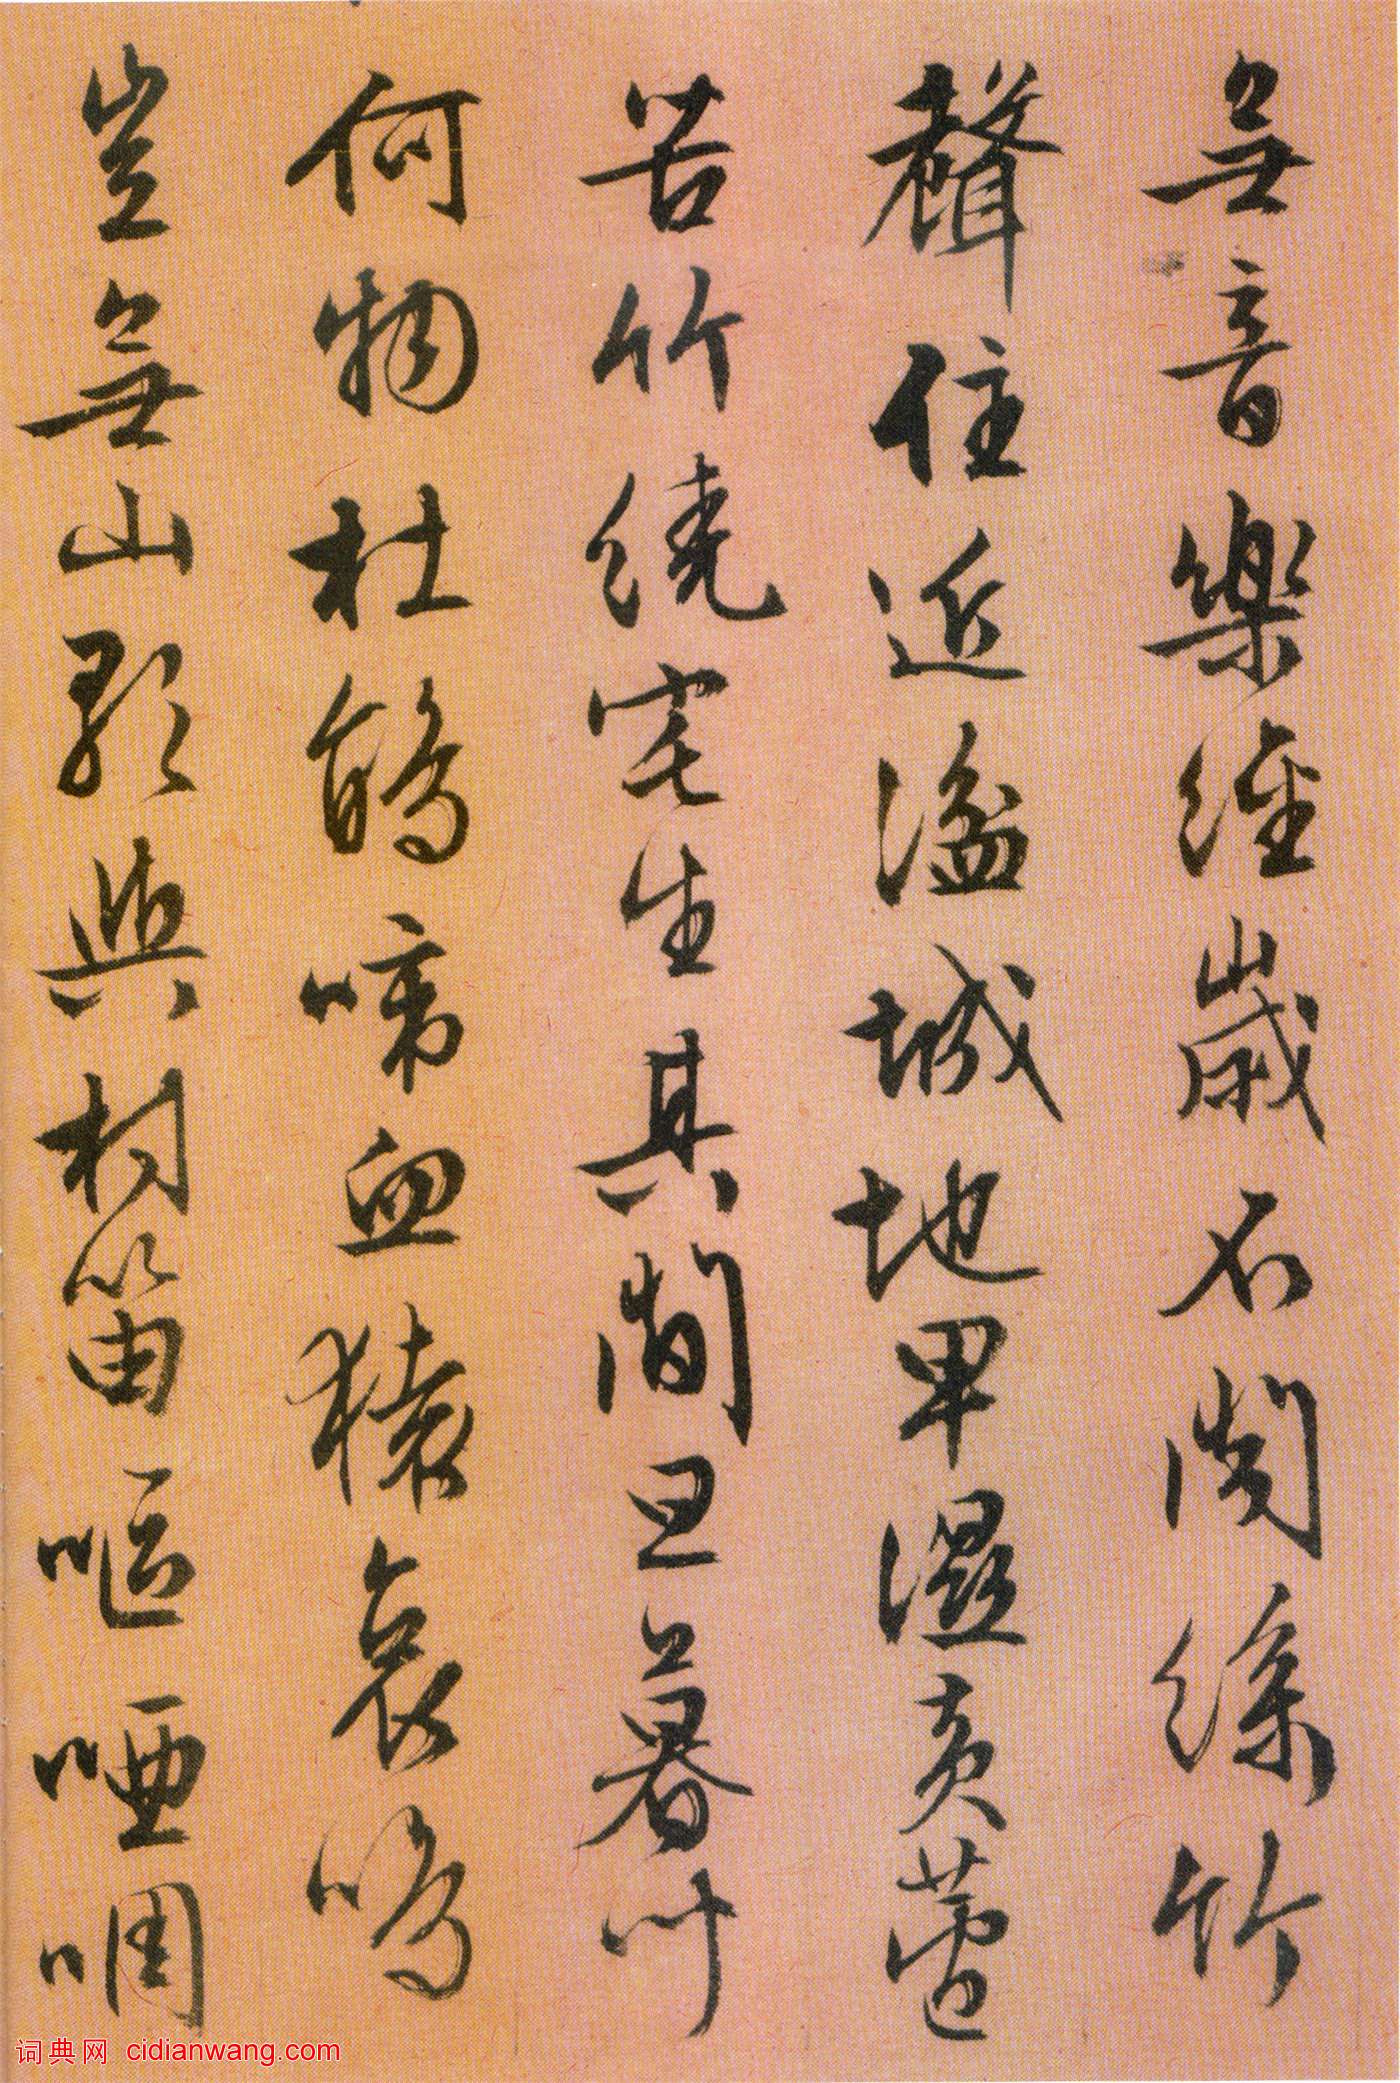 無音樂經歲不聞絲竹
聲住近湓城地卑濕黃蘆
苦竹繞宅生其間旦暮聞
何物杜鵑啼血猿哀鳴
豈無山歌與村笛嘔啞啁
词典网 cidianwang.com